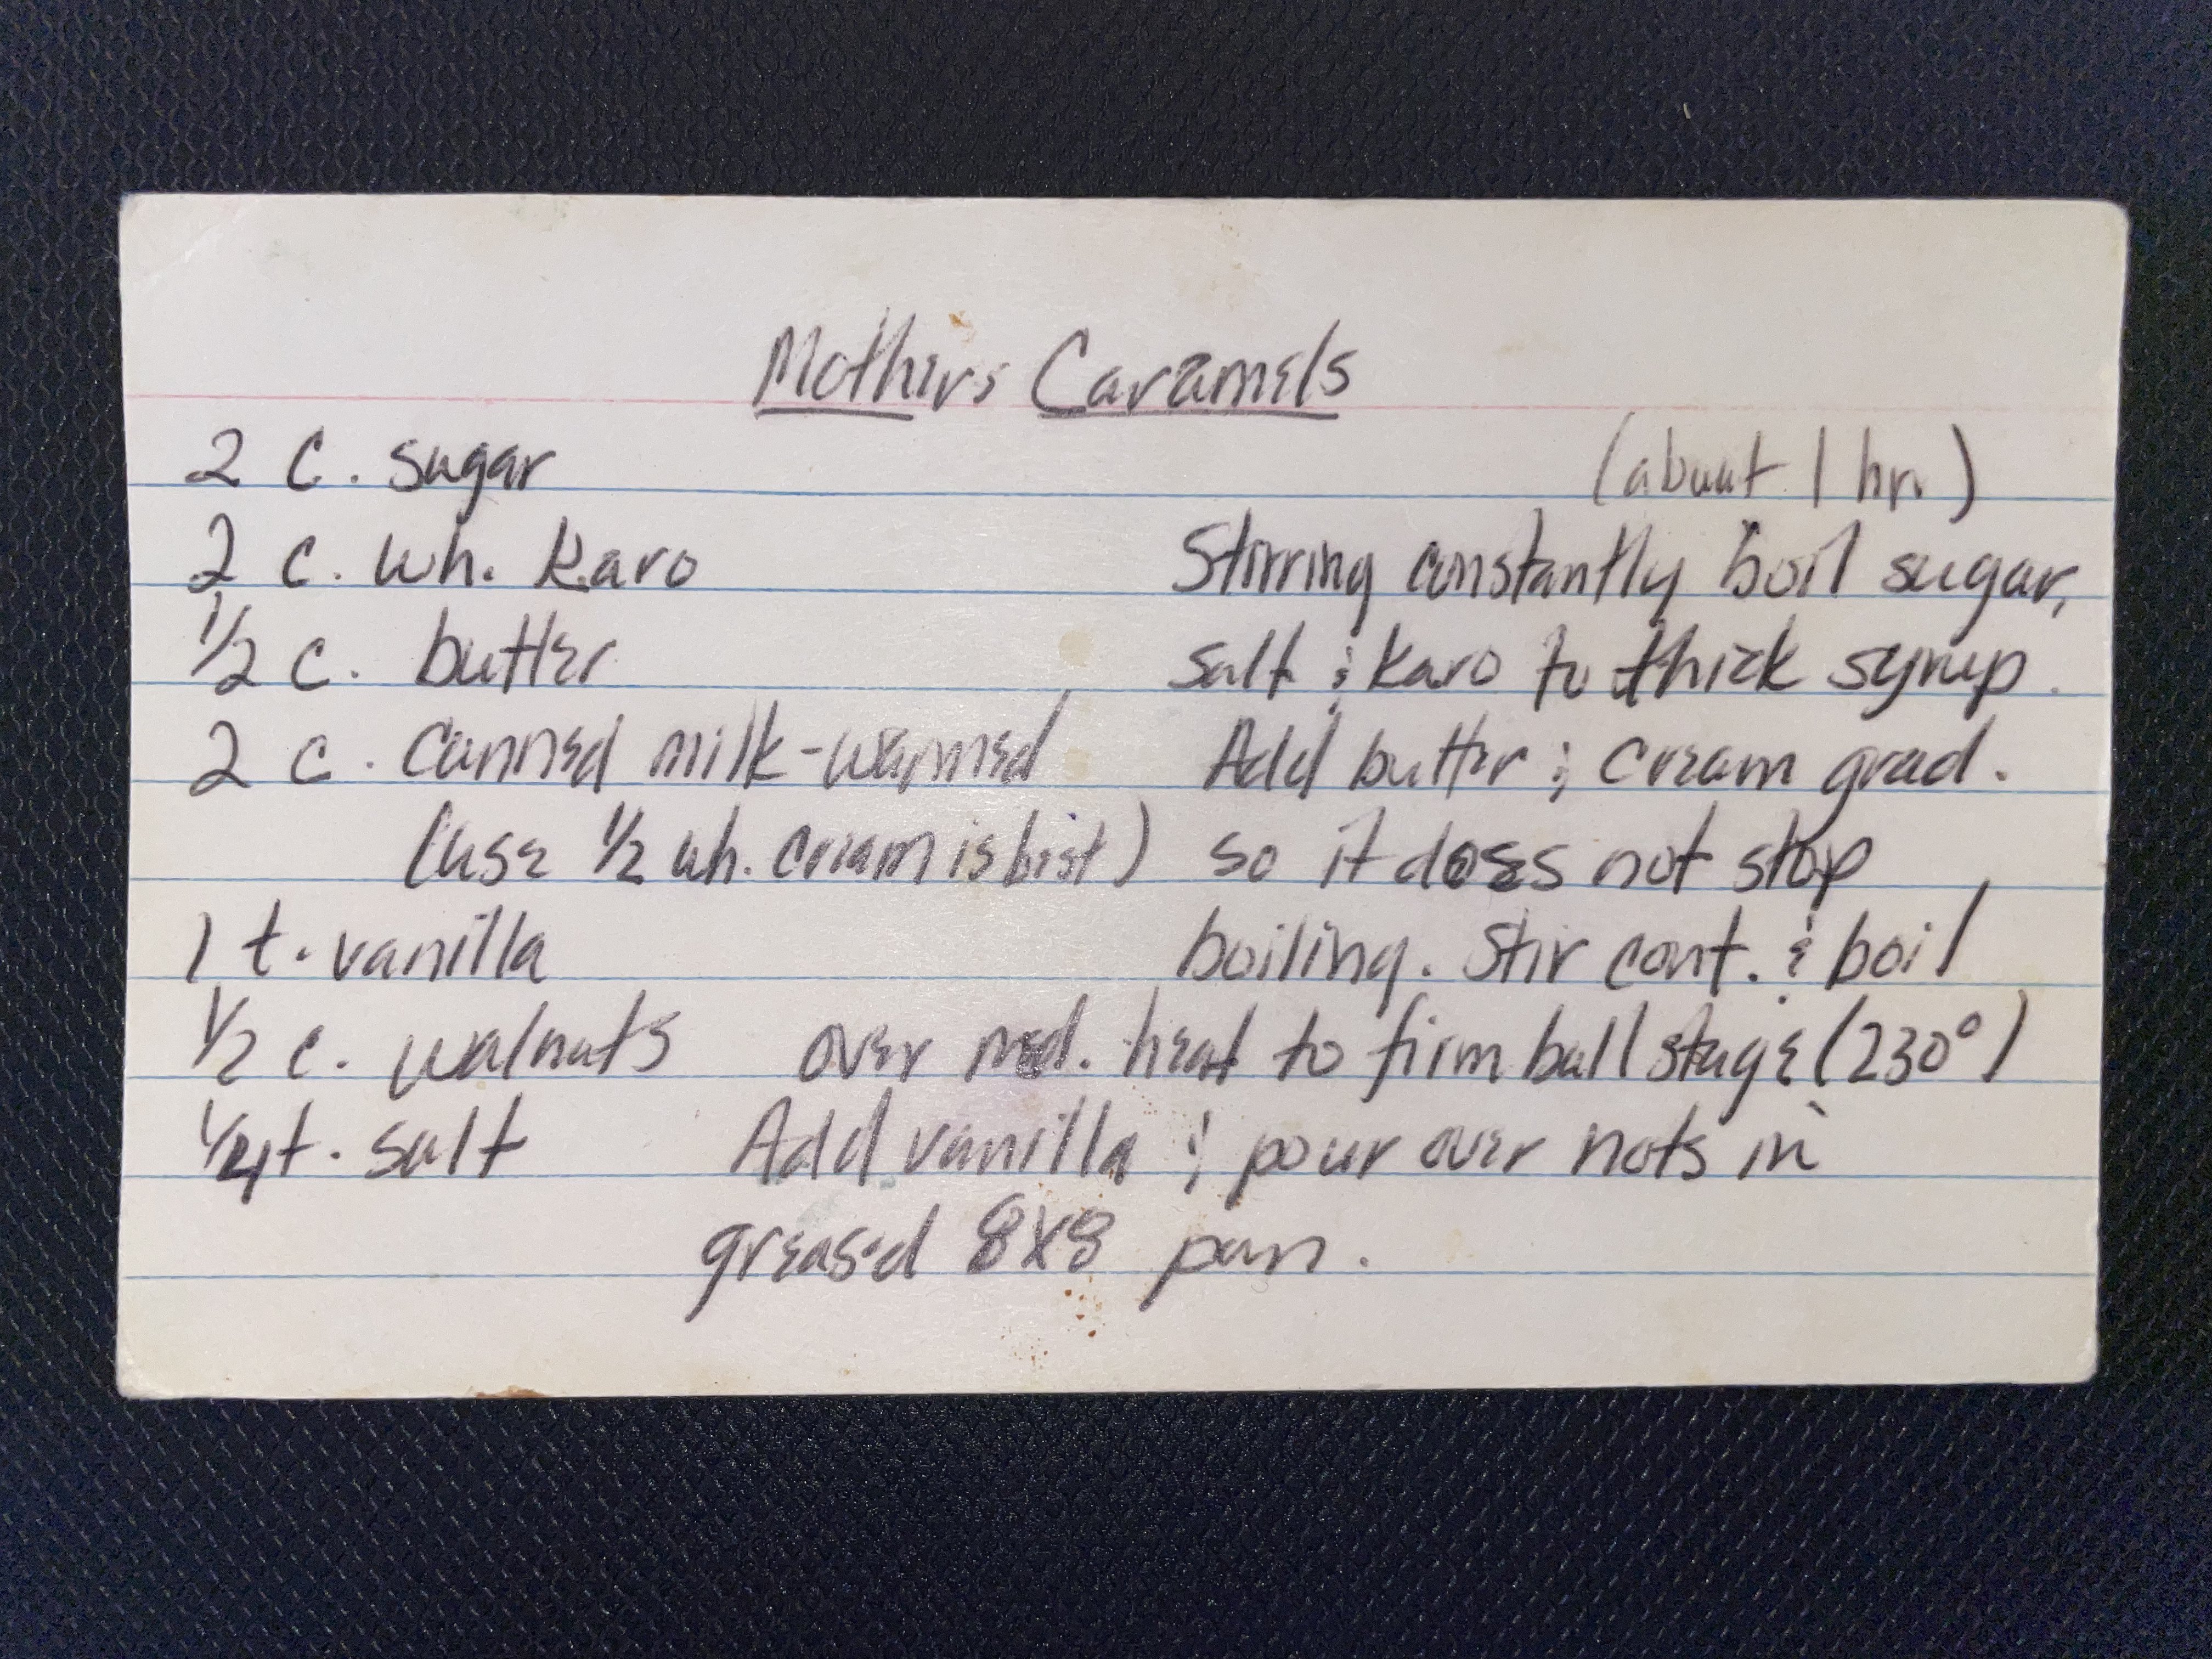 Mothers Caramels
2 c. sugar
2 c. wh. Karo
1/2 c. butter
2 c. canned milk-warmed
(use 1/2 wh. cream is best)
1 t. vanilla
1/2 c. walnuts
1/4 t. salt
(about 1 hr.)
Stirring constantly boil sugar,
salt & Karo to thick syrup.
Add butter & cream grad.
so it does not stop
boiling. Stir cont. & boil
over med. heat to firm ball stage (230°)
Add vanilla & pour over nuts in
greased 8x8 pan.